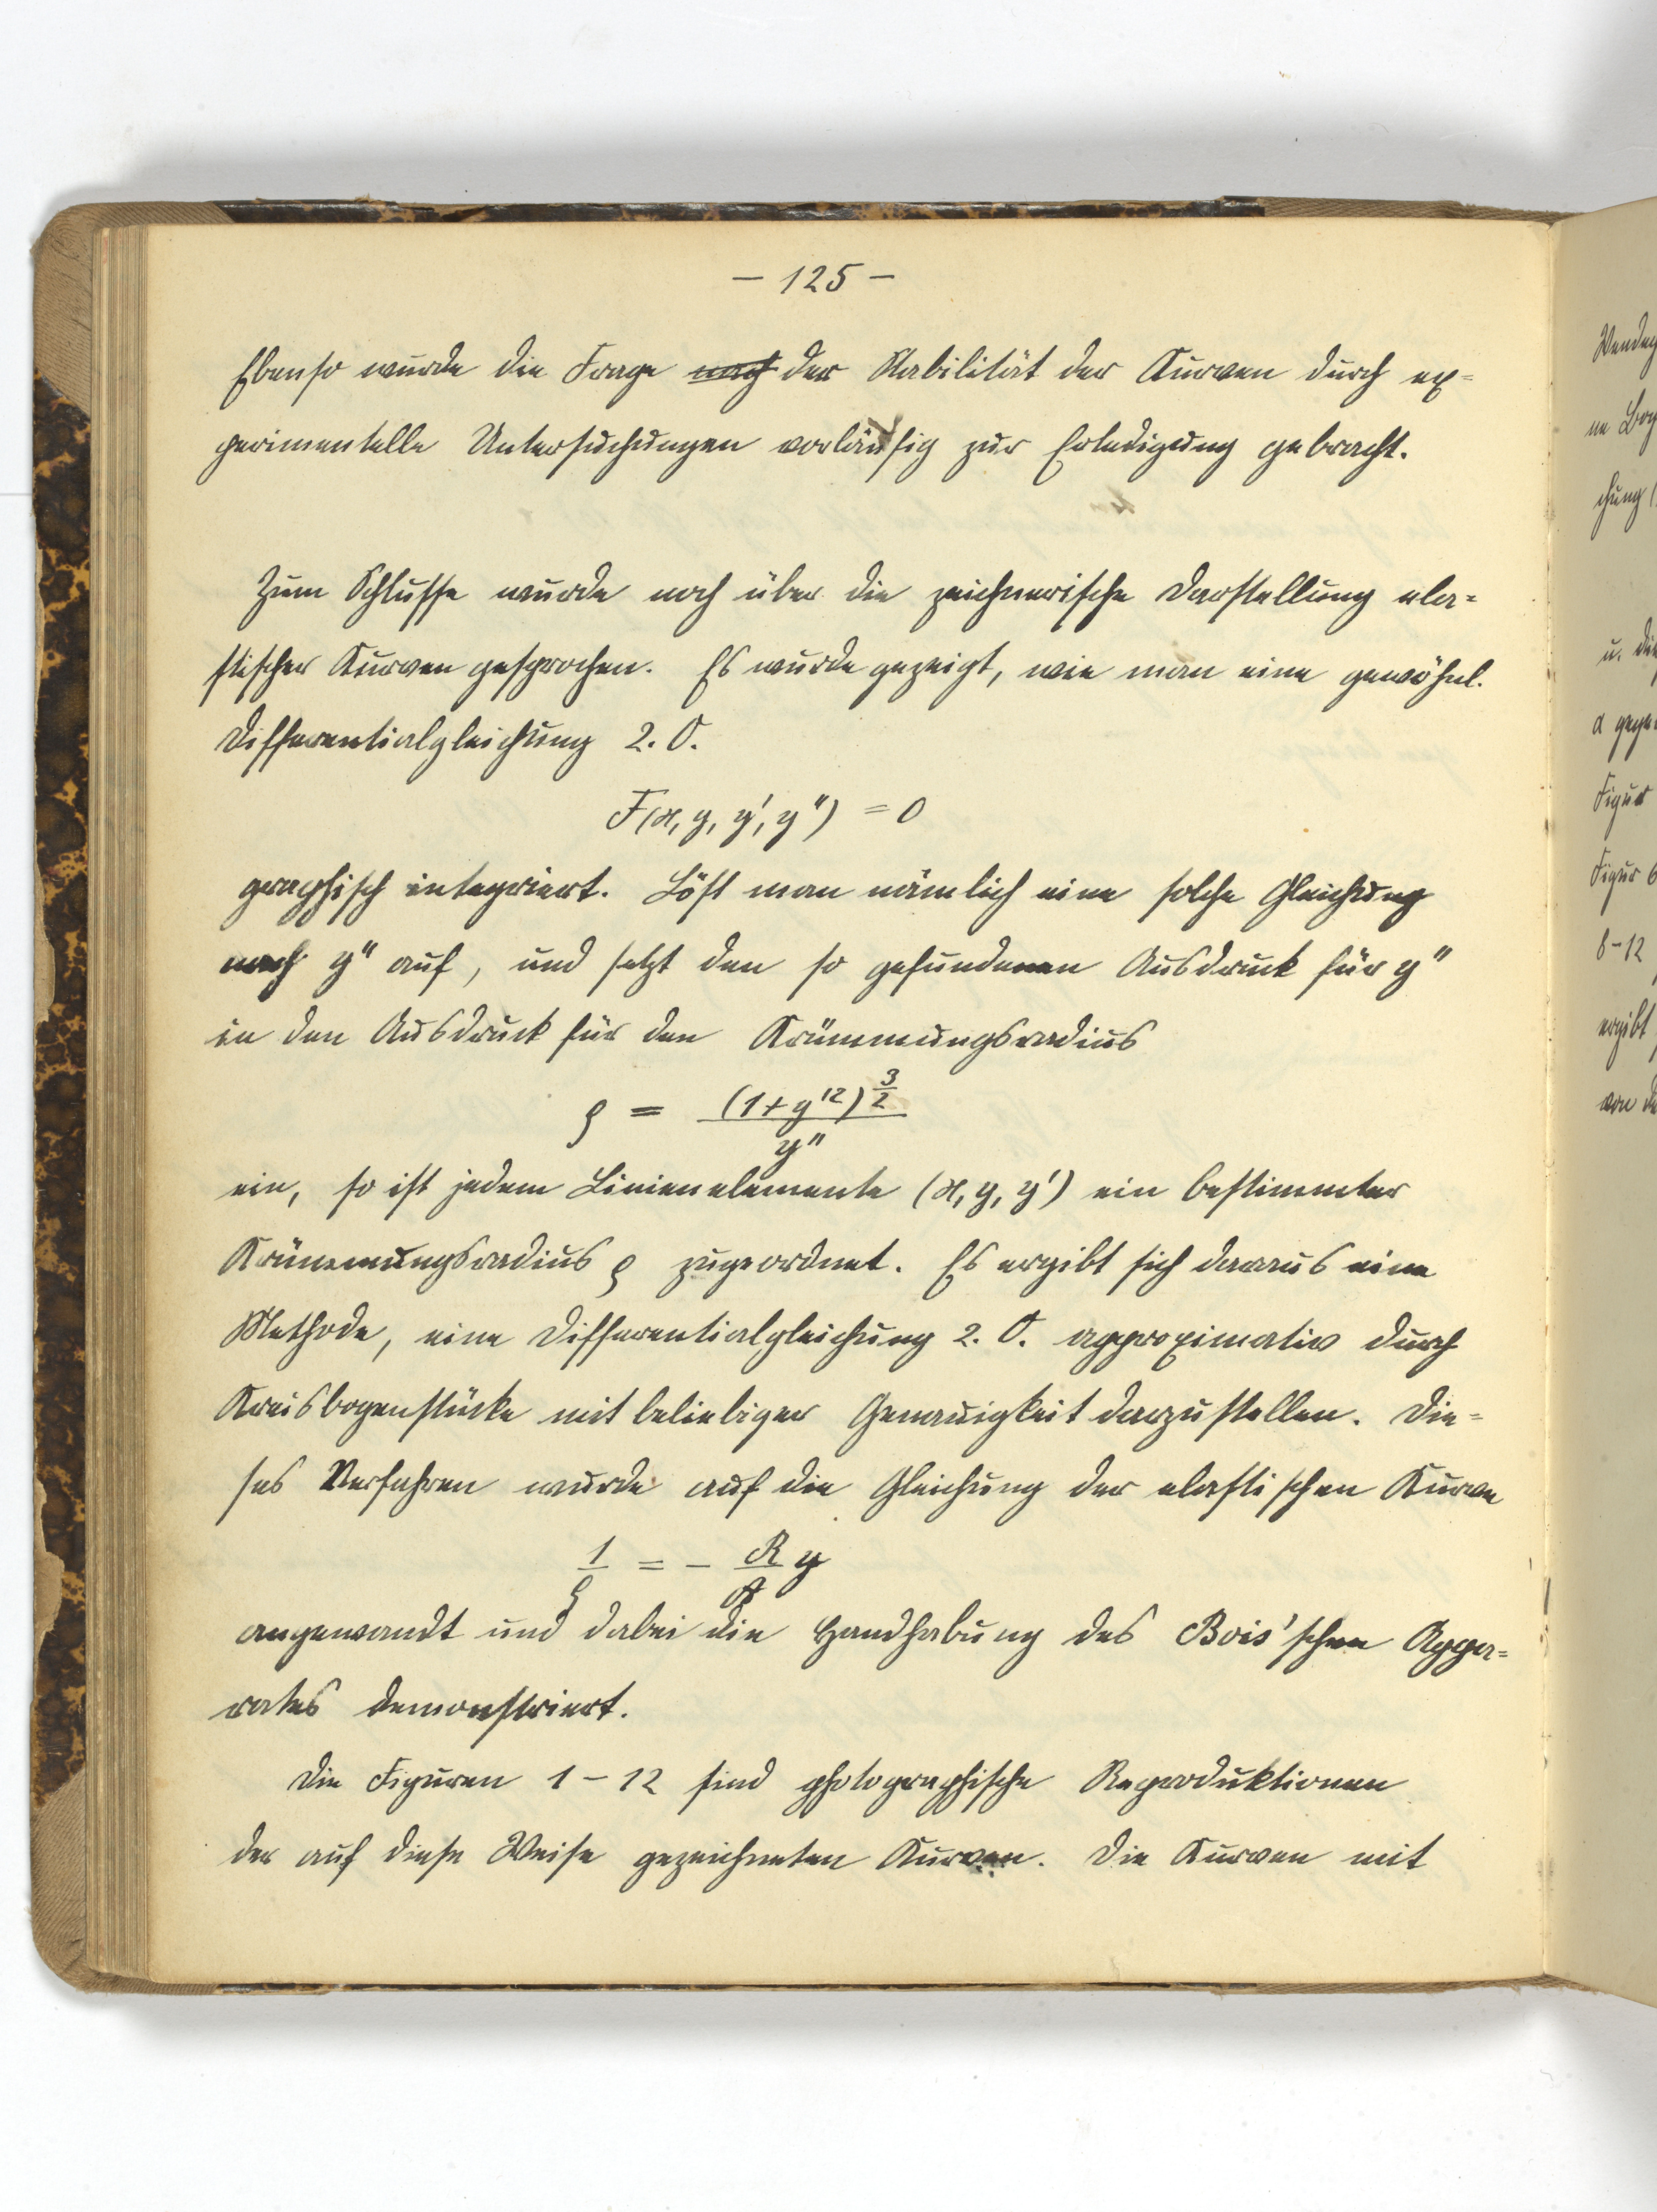 – 125 –
Ebenso wurde die Frage nach der Stabilität der Kurven durch ex-
perimentelle Untersuchungen vorläufig zur Erledigung gebracht.
Zum Schlusse wurde noch über die zeichnerische Darstellung ela-
stischer Kurven gesprochen. Es wurde gezeigt, wie man eine gewöhnl.
Differentialgleichung 2. O.
F(x, y, y', y'') = 0
graphisch integriert. Löst man nämlich eine solche Gleichung
nach y'' auf, und setzt den so gefundenen Ausdruck für y''
in den Ausdruck für den Krümmungsradius
ρ = (1+y'²)^(3/2) / y''
ein, so ist jedem Linienelemente (x, y, y') ein bestimmter
Krümmungsradius ρ zugeordnet. Es ergibt sich daraus eine
Methode, eine Differentialgleichung 2. O. approximativ durch
Kreisbogenstücke mit beliebiger Genauigkeit darzustellen. Die-
ses Verfahren wurde auf die Gleichung der elastischen Kurve
1/ρ = – R/A y
angewandt und dabei die Handhabung des Bois'schen Appa-
rates demonstriert.
Die Figuren 1 – 12 sind photographische Reproduktionen
der auf diese Weise gezeichneten Kurven. Die Kurven mit
chung
u. die
Figur
Figur 6
8–12
ergibt